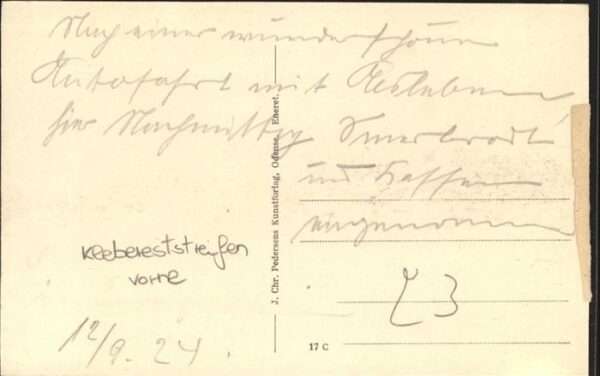 Nach einer wunderschönen
Autofahrt mit
hier Nachmittag Smørbrod
und Kaffee
eingenommen
J. Chr. Pedersens Kunstforlag, Odense. Eneret.
Klebereststreifen
vorne
23
12/9. 24.
17 C